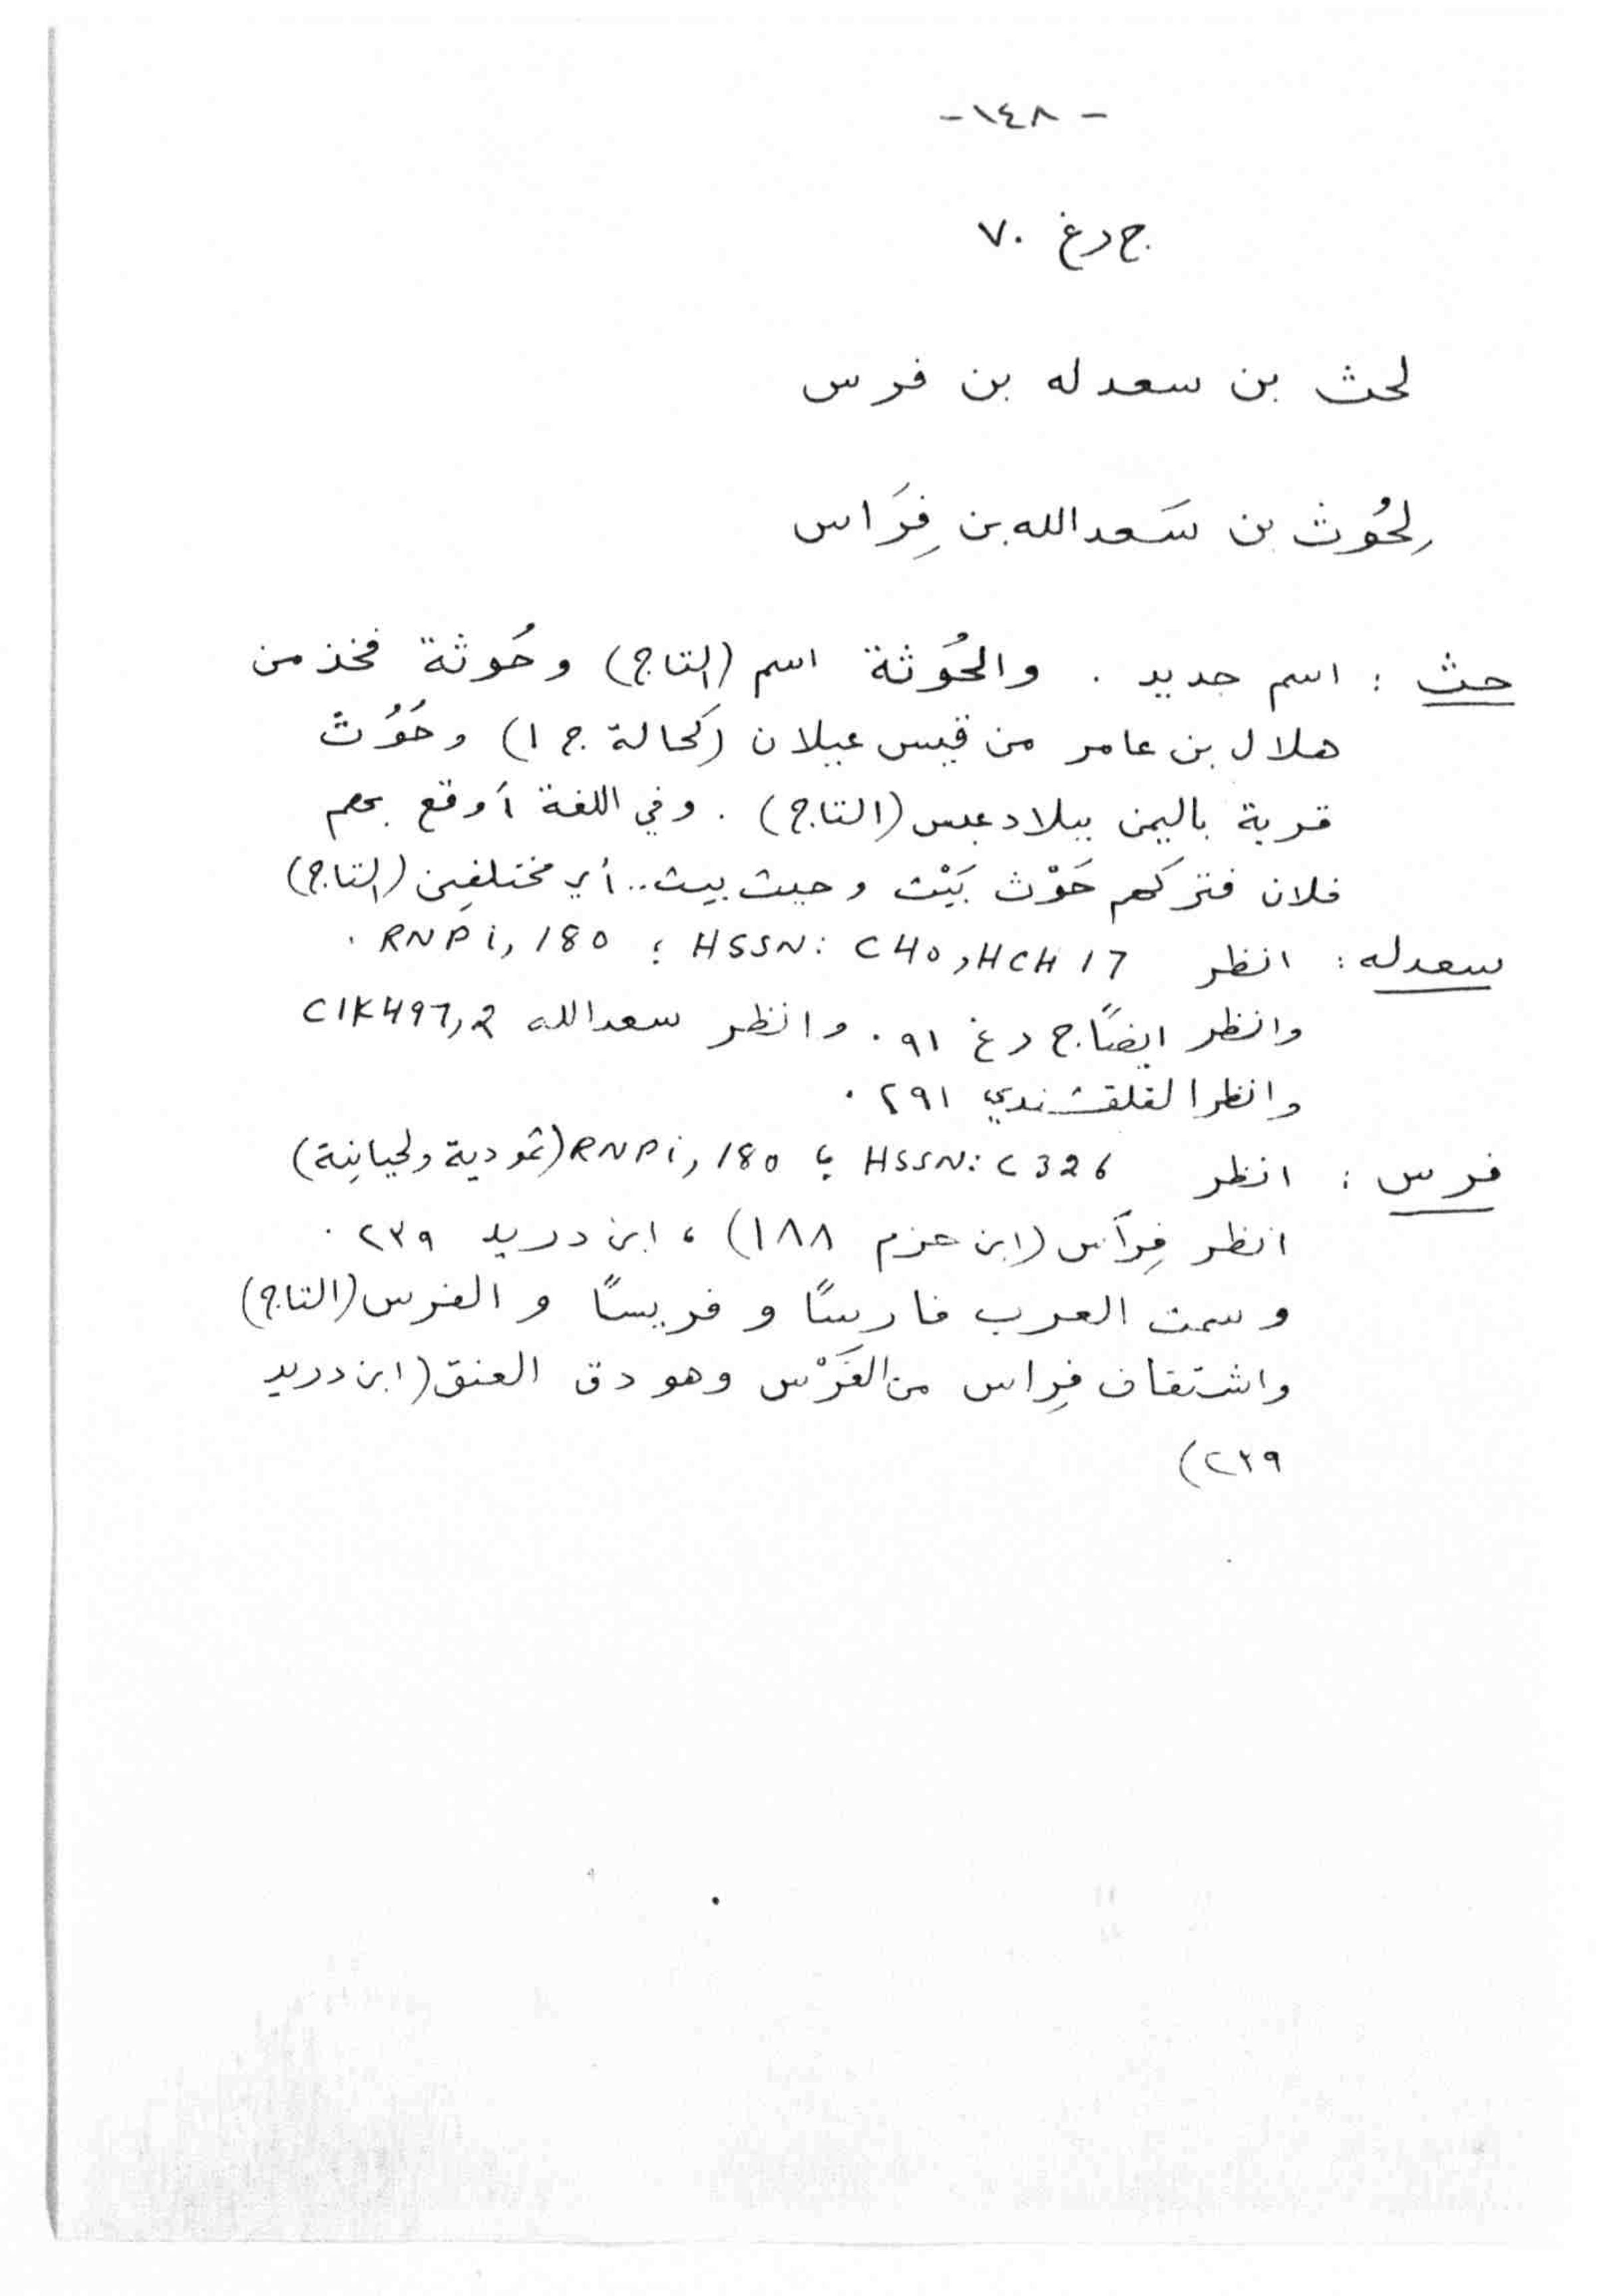 - ١٤٨ -
ج د غ ٧٠
لحث بن سعد له بن فرس
لِحُوث بن سَعد الله بن فِرَاس
حث : اسم جديد . والحُوثة اسم (التاج) وحُوثة فخذ من
هلال بن عامر من قيس عيلان (كحالة ج ١) وحُوُثٌ
قرية باليمن ببلاد عبس (التاج) . وفي اللغة أوقع بهم
فلان فتركهم حَوْث بَيْث وحيث بيث .. أي مختلفين (التاج)
سعدله : انظر HSSN: C40, HCH 17 ؛ RNPi, 180 .
وانظر ايضًا ج د غ ٩١ . وانظر سعد الله CIK497,2
وانظر القلقشندي ٢٩١ .
فرس : انظر HSSN: C326 ؛ RNPi, 180 (ثمودية ولحيانية)
انظر فِرَاس (ابن حزم ١٨٨) ، ابن دريد ٢٣٩ .
وسمت العرب فارسًا و فريسًا و الفرس (التاج)
واشتقاق فِراس من الفَرْس وهو دق العنق (ابن دريد
٢٣٩)